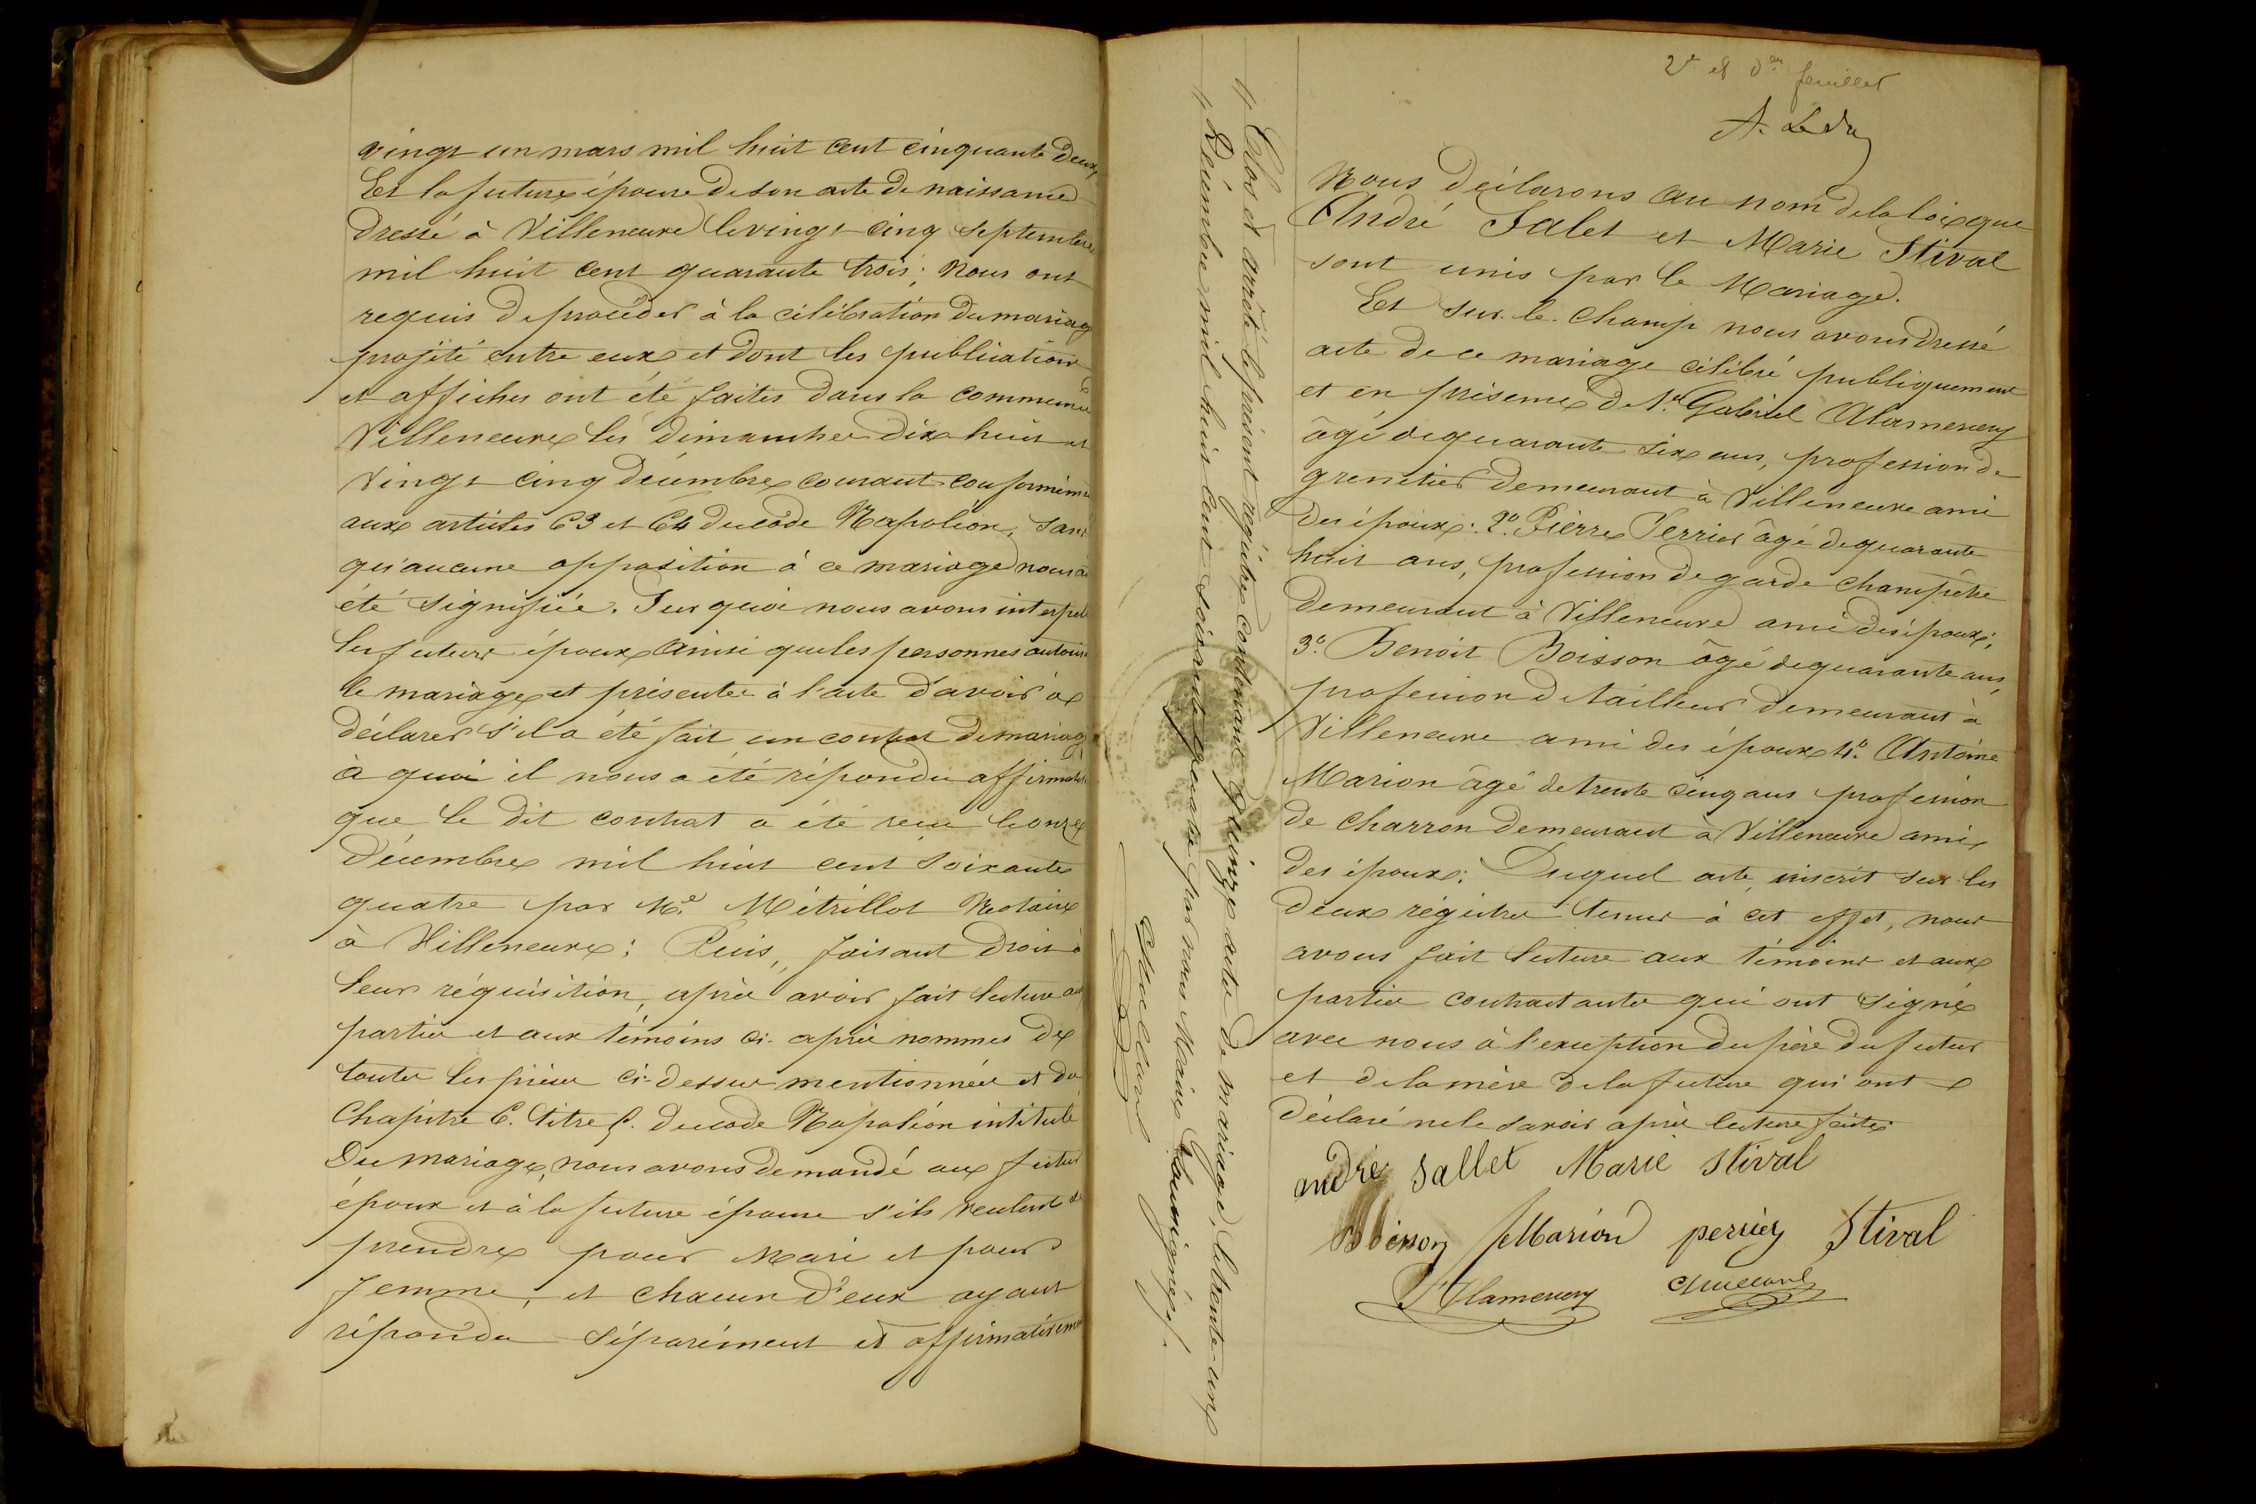 vingt un mars mil huit cent cinquante deux
Et la future épouse de son acte de naissance
dressé à Villeneuve le vingt cinq septembre
mil huit cent quarante trois; Nous ont
requis de procéder à la célébration du mariage
projété entre eux et dont les publications
et affiches ont été faites dans la commune de
Villeneuve les dimanches dix huit et
vingt cinq décembre courant conformément
aux articles 63 et 64 du code Napoléon, sans
qu'aucune opposition à ce mariage nous ai
été signifiée. Sur quoi nous avons interpelé
les futurs époux ainsi que les personnes autoris
le mariage et présentes à l'acte d'avoir à
déclarer s'il a été fait un contrat de mariage
à quoi il nous a été répondu affirmativ
que le dit contrat a été reçu le onze
décembre mil huit cent soixante
quatre par Me Métrillot Notaire
à Villeneuve: Puis, faisant droit à
leur réquisition, après avoir fait lecture aux
parties et aux témoins ci-après nommés de
toutes les pièces ci-dessus mentionnées et du
Chapitre 6. titre 5. du code Napoléon intitulé
Du mariage, nous avons demandé au futur
époux et à la future épouse s'ils veulent se
prendre pour mari et pour
femme, et chacun d'eux ayant
répondu séparément et affirmativement
Clos et arrêté le présent régistre contenant quinze actes de mariage, le trente-un
Décembre mil huit cent soixante quatre par nous Maire soussigné.
2e et der feuillet
Nous déclarons au nom de la loi que
André Salet et Marie Stival
sont unis par le Mariage.
Et sur-le-champ nous avons dressé
acte de ce mariage célébré publiquement
et en présence de 1o Gabriel Alamercery
âgé de quarante six ans, profession de
grenetier demeurant à Villeneuve ami
des époux: 2o Pierre Perrier âgé de quarante
huit ans, profession de garde champêtre
demeurant à Villeneuve ami des époux;
3o Benoit Boisson âgé de quarante ans,
profession de tailleur demeurant à
Villeneuve ami des époux 4o Antoine
Marion âgé de trente cinq ans profession
de charron demeurant à Villeneuve ami
des époux; Duquel acte, inscrit sur les
deux régistres tenus à cet effet, nous
avons fait lecture aux témoins et aux
parties contractantes qui ont signé
avec nous à l'exception du père du futur
et de la mère de la future qui ont
déclaré ne le savoir après lecture faite
andré Sallet Marie Stival
Boisson Marion perrier Stival
Alamercery